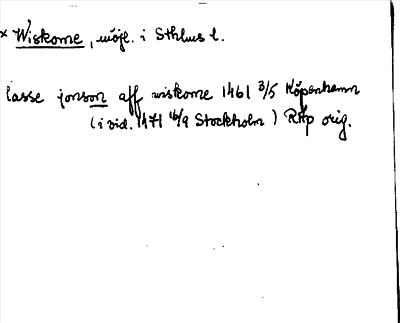 × Wiskome, möjl. i Sthlms l.
lasse jonson aff wiskome 1461 3/5 Köpenhamn
(i vid. 1471 16/9 Stockholm) RAp orig.